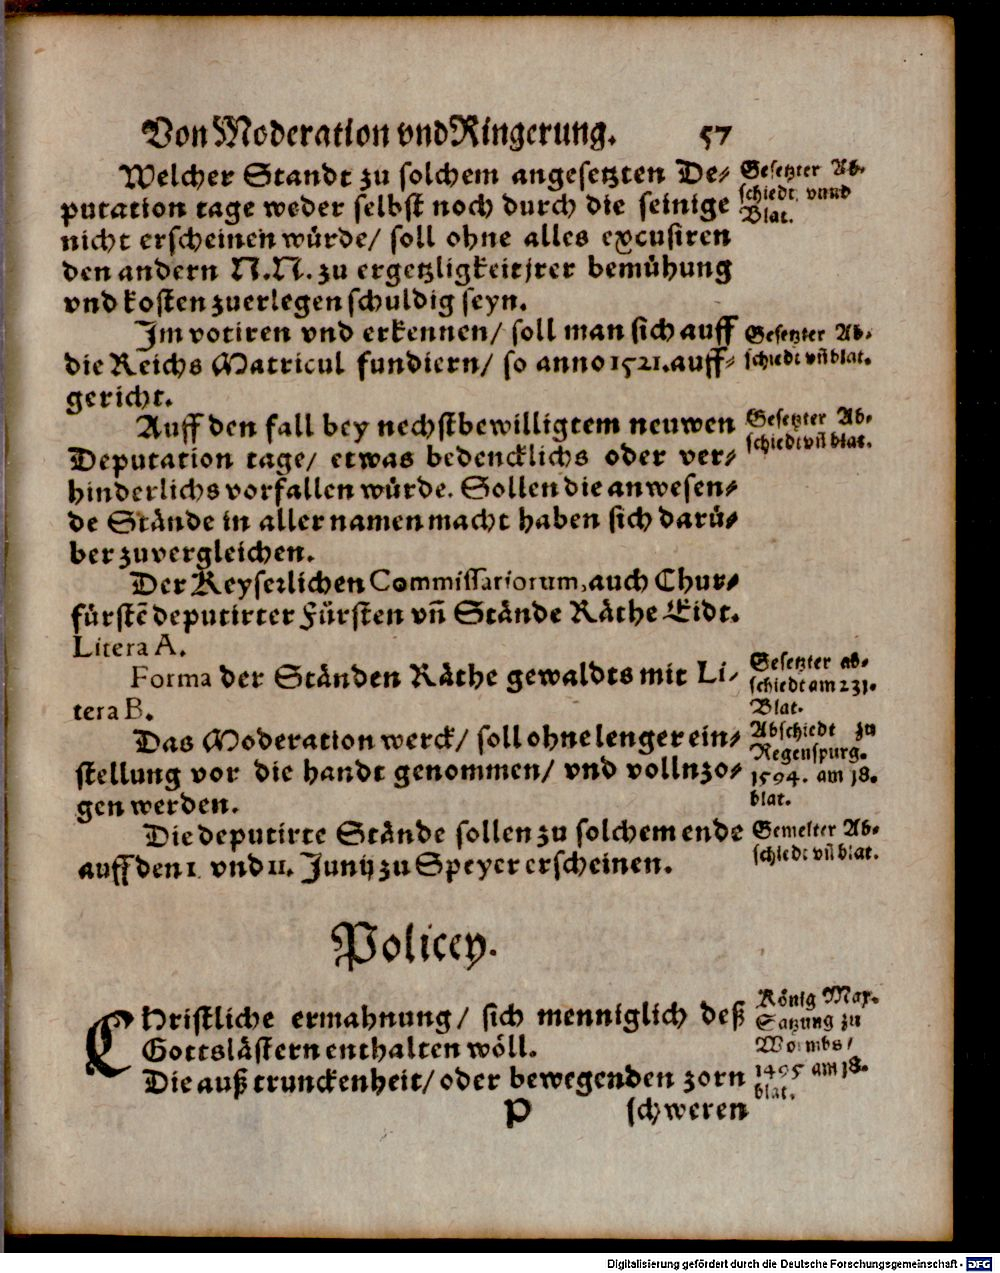 Von Moderation vnd Ringerung. 57
Welcher Standt zu solchem angesetzten De-
putation tage weder selbst noch durch die seinige
nicht erscheinen würde/ soll ohne alles excusiren
den andern N.N. zu ergetzligkeit jrer bemühung
vnd kosten zuerlegen schuldig seyn.
Gesetzter Ab-
schiedt vnnd
Blat.
Im votiren vnd erkennen/ soll man sich auff
die Reichs Matricul fundiern/ so anno 1521. auff-
gericht.
Gesetzter Ab-
schiedt vñ blat.
Auff den fall bey nechstbewilligtem neuwen
Deputation tage/ etwas bedencklichs oder ver-
hinderlichs vorfallen würde. Sollen die anwesen-
de Stände in aller namen macht haben sich darü-
ber zuvergleichen.
Gesetzter Ab-
schiedt vñ blat.
Der Keyserlichen Commissariorum, auch Chur-
fürstẽ deputirter Fürsten vñ Stände Räthe Eidt.
Litera A.
Forma der Ständen Räthe gewaldts mit Li-
tera B.
Gesetzter ab-
schiedt am 231.
Blat.
Das Moderation werck/ soll ohne lenger ein-
stellung vor die handt genommen/ vnd vollnzo-
gen werden.
Abschiedt zu
Regenspurg.
1594. am 18.
blat.
Die deputirte Stände sollen zu solchem ende
auff den 1. vnd 11. Junij zu Speyer erscheinen.
Gemelter Ab-
schiedt vñ blat.
Policey.
CHristliche ermahnung/ sich menniglich deß
Gottslästern enthalten wöll.
Die auß trunckenheit/ oder bewegenden zorn
König Max.
Satzung zu
Wormbs/
1495 am 18.
blat.
P schweren
Digitalisierung gefördert durch die Deutsche Forschungsgemeinschaft - DFG